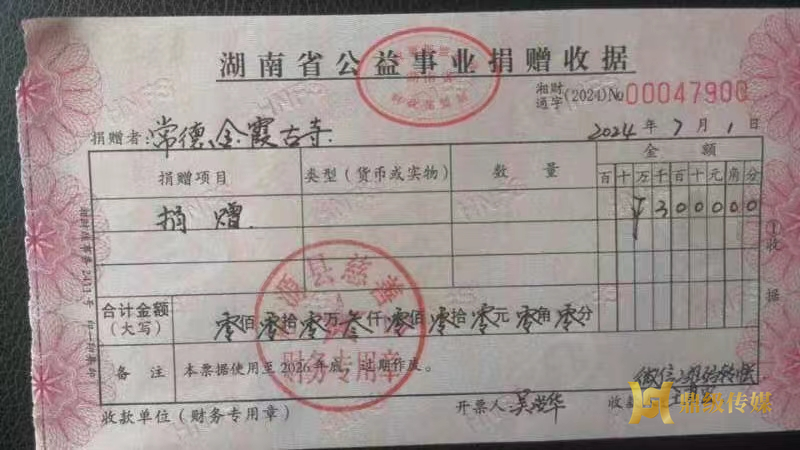 湖南省公益事业捐赠收据
湘财通字(2024)No 00047900
捐赠者:常德金霞古寺 2024年7月1日
捐赠项目 类型(货币或实物) 数量 金额
百十万千百十元角分
捐赠 ¥300000
合计金额(大写) 零佰零拾零万叁仟零佰零拾零元零角零分
源县慈善
财务专用章
备注 本票据使用至2026年底,过期作废。
收款单位(财务专用章) 开票人 收款
①收据
鼎级传媒